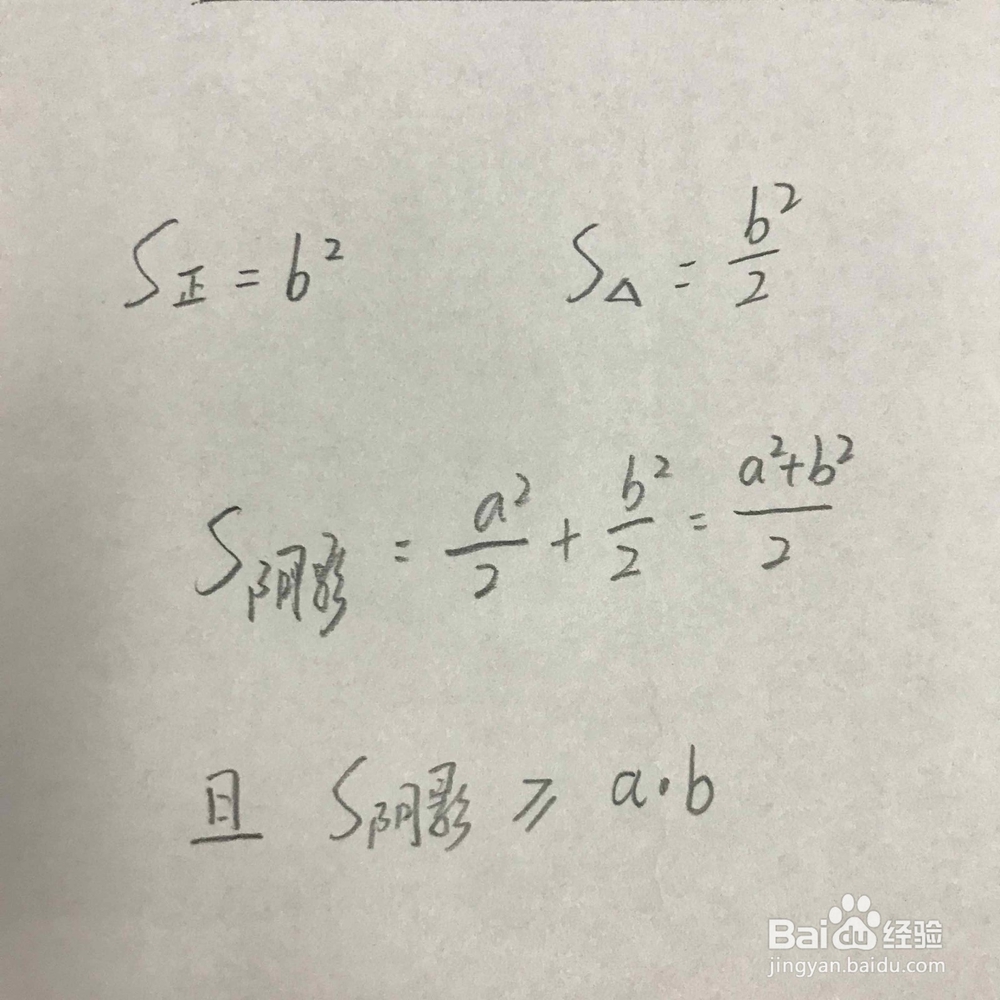 S正 = b²  S△ = b²/2
S阴影 = a²/2 + b²/2 = a²+b²/2
且 S阴影 ⩾ a·b
Bai du 经验
jingyan.baidu.com